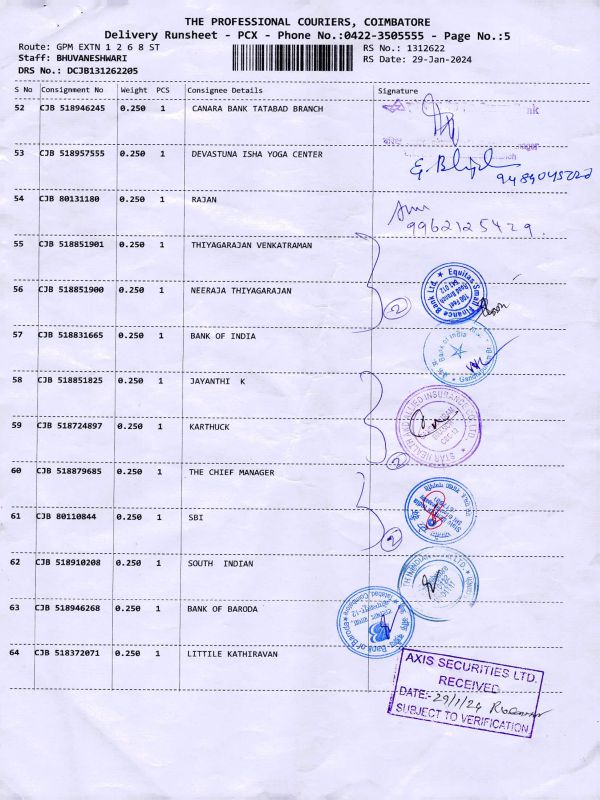 THE PROFESSIONAL COURIERS, COIMBATORE
Delivery Runsheet - PCX - Phone No.:0422-3505555 - Page No.:5
Route: GPM EXTN 1 2 6 8 ST
RS No.: 1312622
Staff: BHUVANESHWARI
RS Date: 29-Jan-2024
DRS No.: DCJB131262205
S No Consignment No Weight PCS Consignee Details Signature
52 CJB 518946245 0.250 1 CANARA BANK TATABAD BRANCH
53 CJB 518957555 0.250 1 DEVASTUNA ISHA YOGA CENTER
54 CJB 80131180 0.250 1 RAJAN
9962125429.
55 CJB 518851901 0.250 1 THIYAGARAJAN VENKATRAMAN
56 CJB 518851900 0.250 1 NEERAJA THIYAGARAJAN
2
Equitas Small Finance Bank Ltd.
57 CJB 518831665 0.250 1 BANK OF INDIA
Bank of India
58 CJB 518851825 0.250 1 JAYANTHI K
59 CJB 518724897 0.250 1 KARTHUCK
2
STAR HEALTH AND ALLIED INSURANCE CO LTD
60 CJB 518879685 0.250 1 THE CHIEF MANAGER
61 CJB 80110844 0.250 1 SBI
2
62 CJB 518910208 0.250 1 SOUTH INDIAN
63 CJB 518946268 0.250 1 BANK OF BARODA
Bank of Baroda
Tatabad, Coimbatore
64 CJB 518372071 0.250 1 LITTILE KATHIRAVAN
AXIS SECURITIES LTD.
RECEIVED
DATE:- 29/1/24
SUBJECT TO VERIFICATION